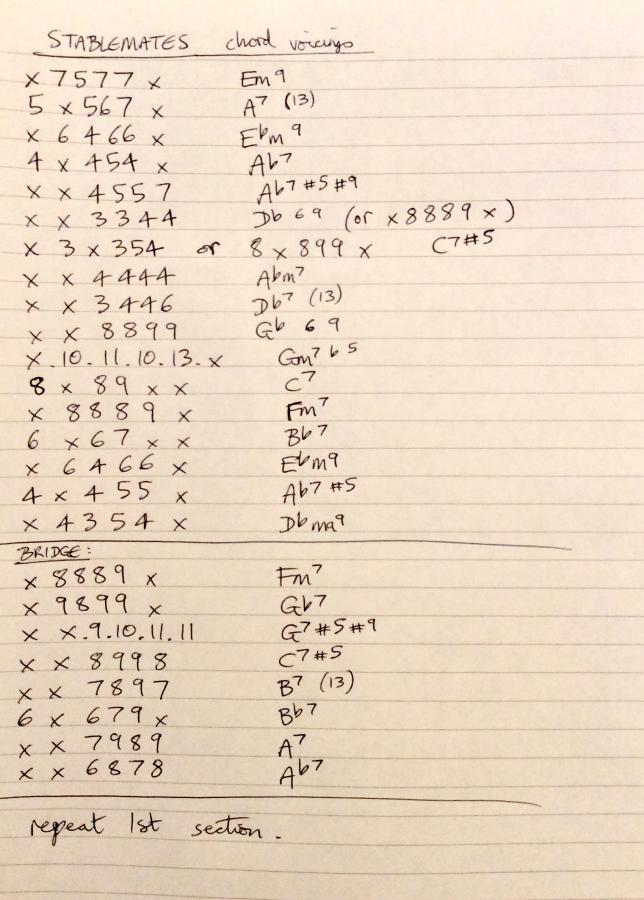 STABLEMATES chord voicings
x 7 5 7 7 x Em9
5 x 5 6 7 x A7 (13)
x 6 4 6 6 x Ebm9
4 x 4 5 4 x Ab7
x x 4 5 5 7 Ab7 #5 #9
x x 3 3 4 4 Db 6 9 (or x 8 8 8 9 x)
x 3 x 3 5 4 or 8 x 8 9 9 x C7#5
x x 4 4 4 4 Abm7
x x 3 4 4 6 Db7 (13)
x x 8 8 9 9 Gb 6 9
x . 10 . 11 . 10 . 13 . x Gm7 b5
8 x 8 9 x x C7
x 8 8 8 9 x Fm7
6 x 6 7 x x Bb7
x 6 4 6 6 x Ebm9
4 x 4 5 5 x Ab7 #5
x 4 3 5 4 x Dbma9
BRIDGE:
x 8 8 8 9 x Fm7
x 9 8 9 9 x Gb7
x x . 9 . 10 . 11 . 11 G7#5#9
x x 8 9 9 8 C7#5
x x 7 8 9 7 B7 (13)
6 x 6 7 9 x Bb7
x x 7 9 8 9 A7
x x 6 8 7 8 Ab7
repeat 1st section .